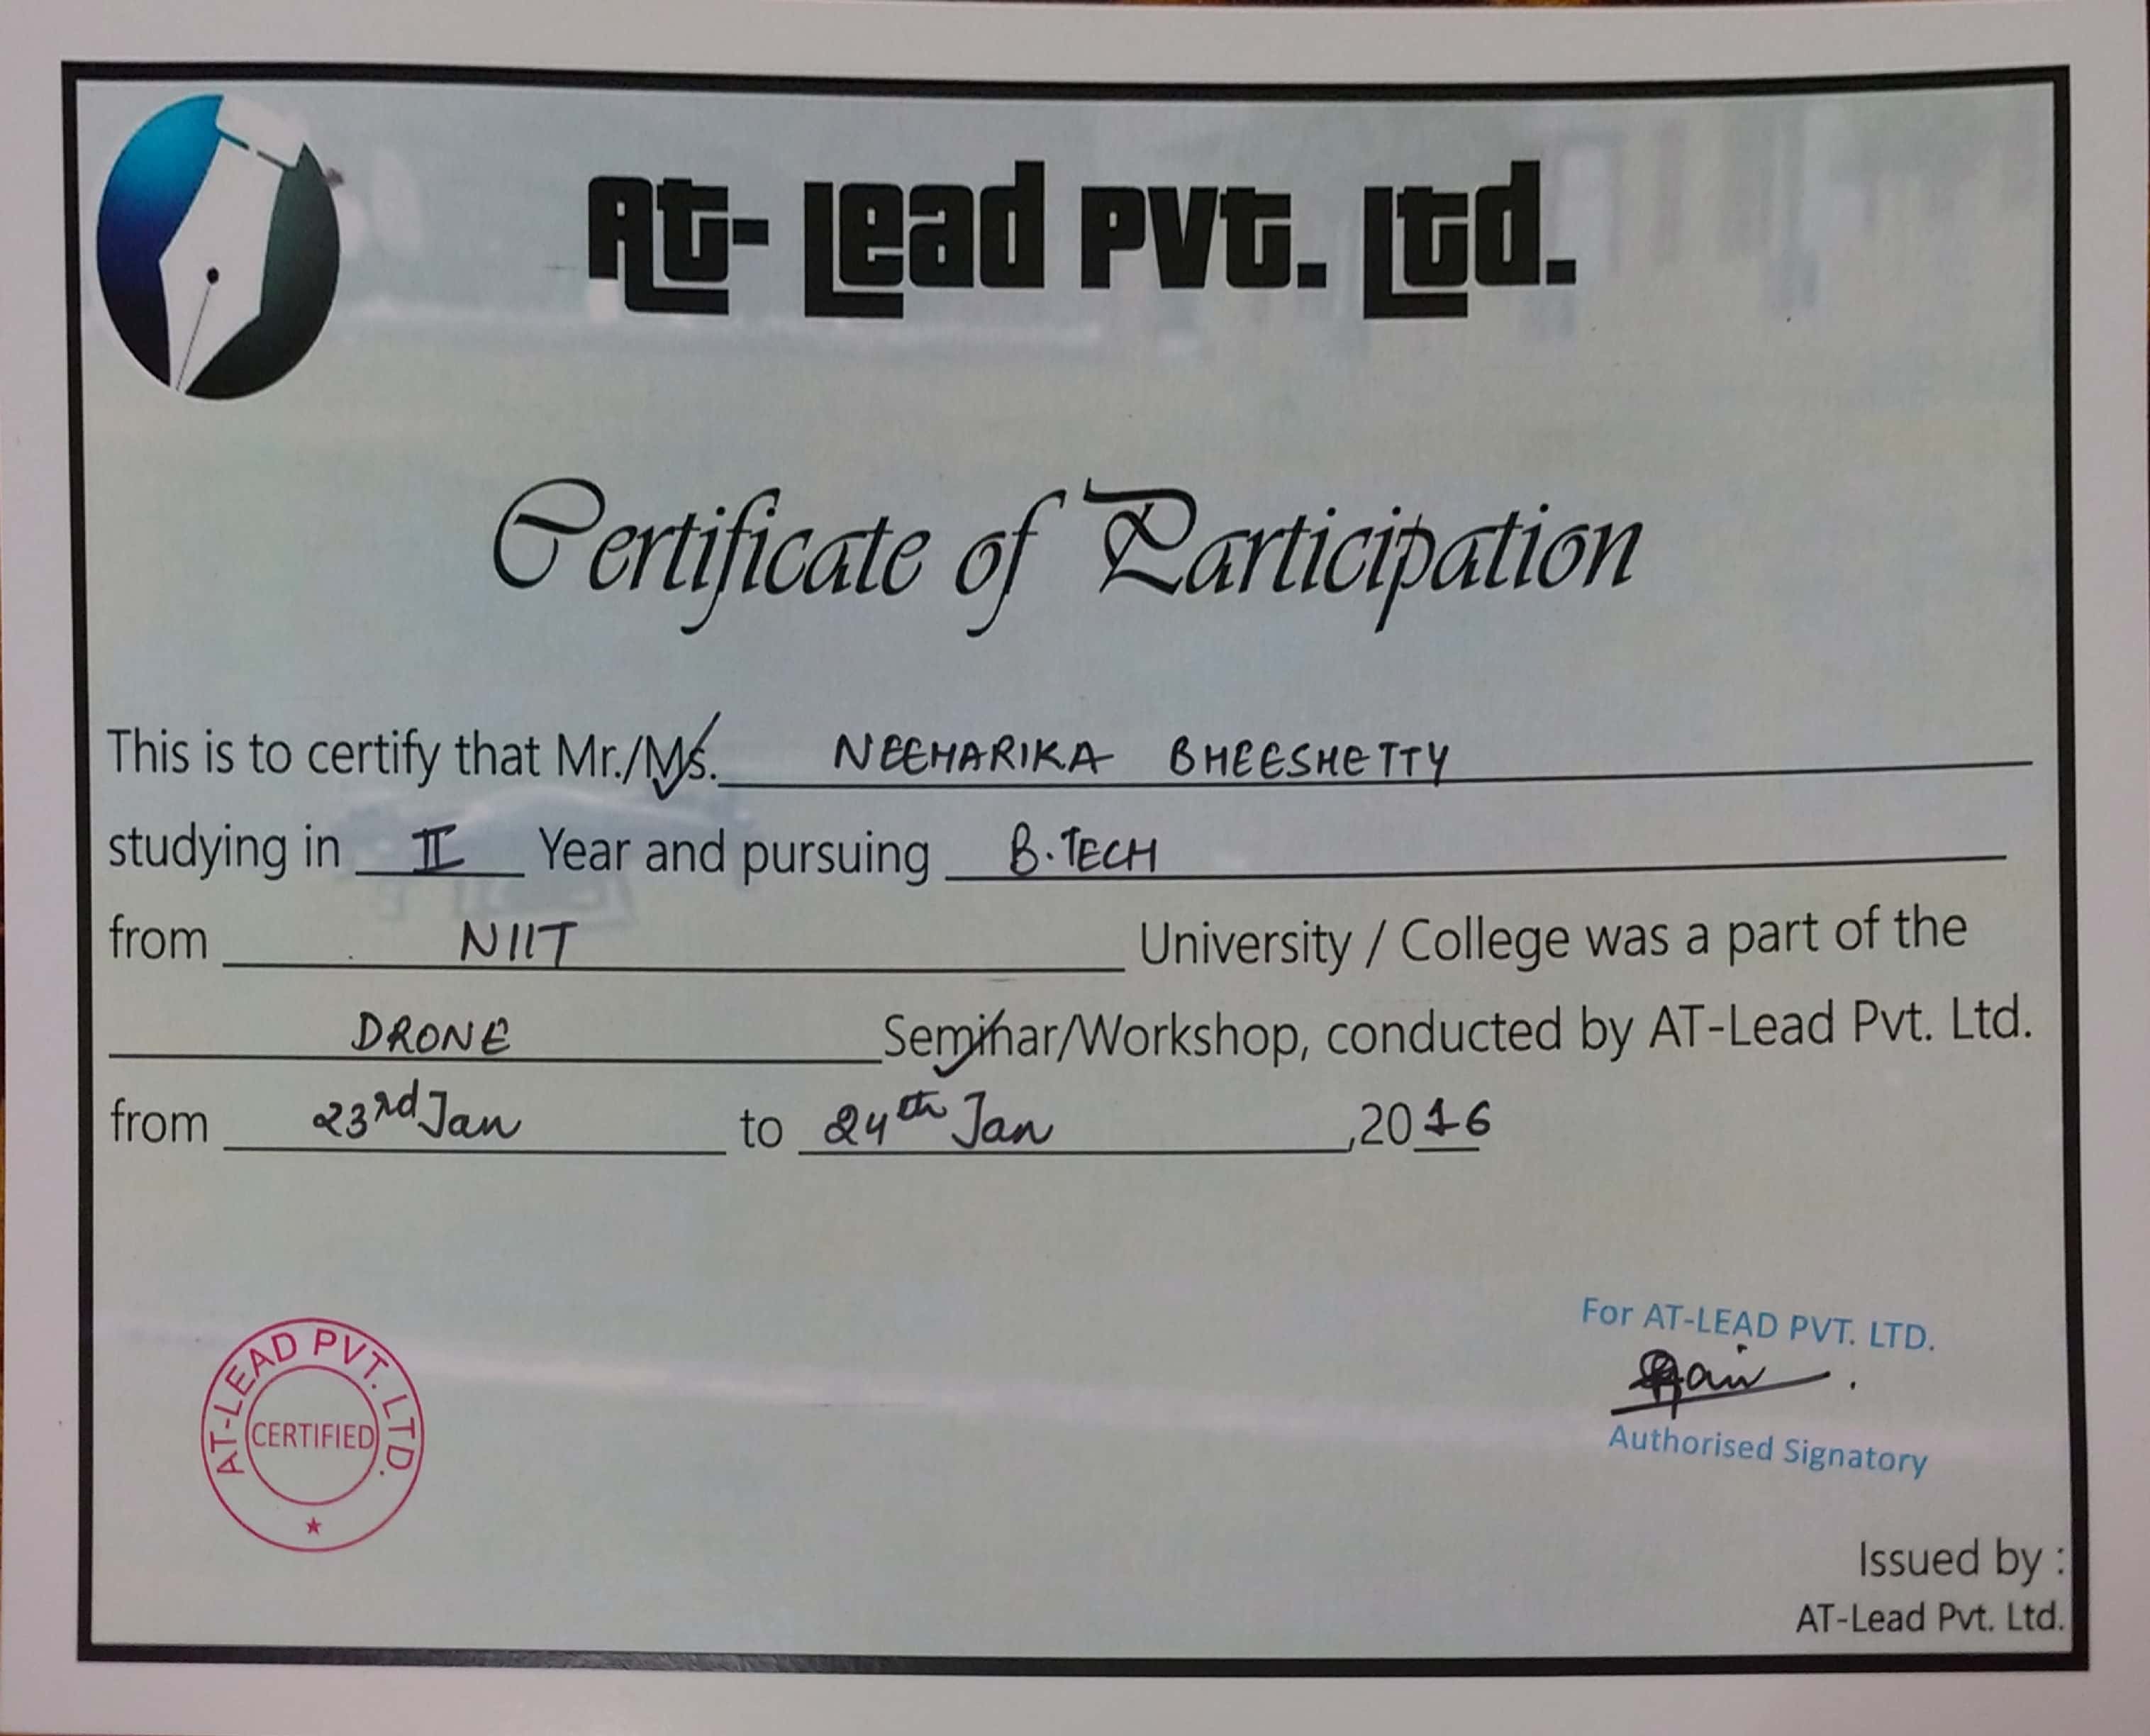 At- Lead Pvt. Ltd.
Certificate of Participation
This is to certify that Mr./Ms. NEEHARIKA BHEESHETTY
studying in II Year and pursuing B.TECH
from NIIT University / College was a part of the
DRONE Seminar/Workshop, conducted by AT-Lead Pvt. Ltd.
from 23rd Jan to 24th Jan ,2016
AT-LEAD PVT. LTD.
CERTIFIED
For AT-LEAD PVT. LTD.
Authorised Signatory
Issued by :
AT-Lead Pvt. Ltd.